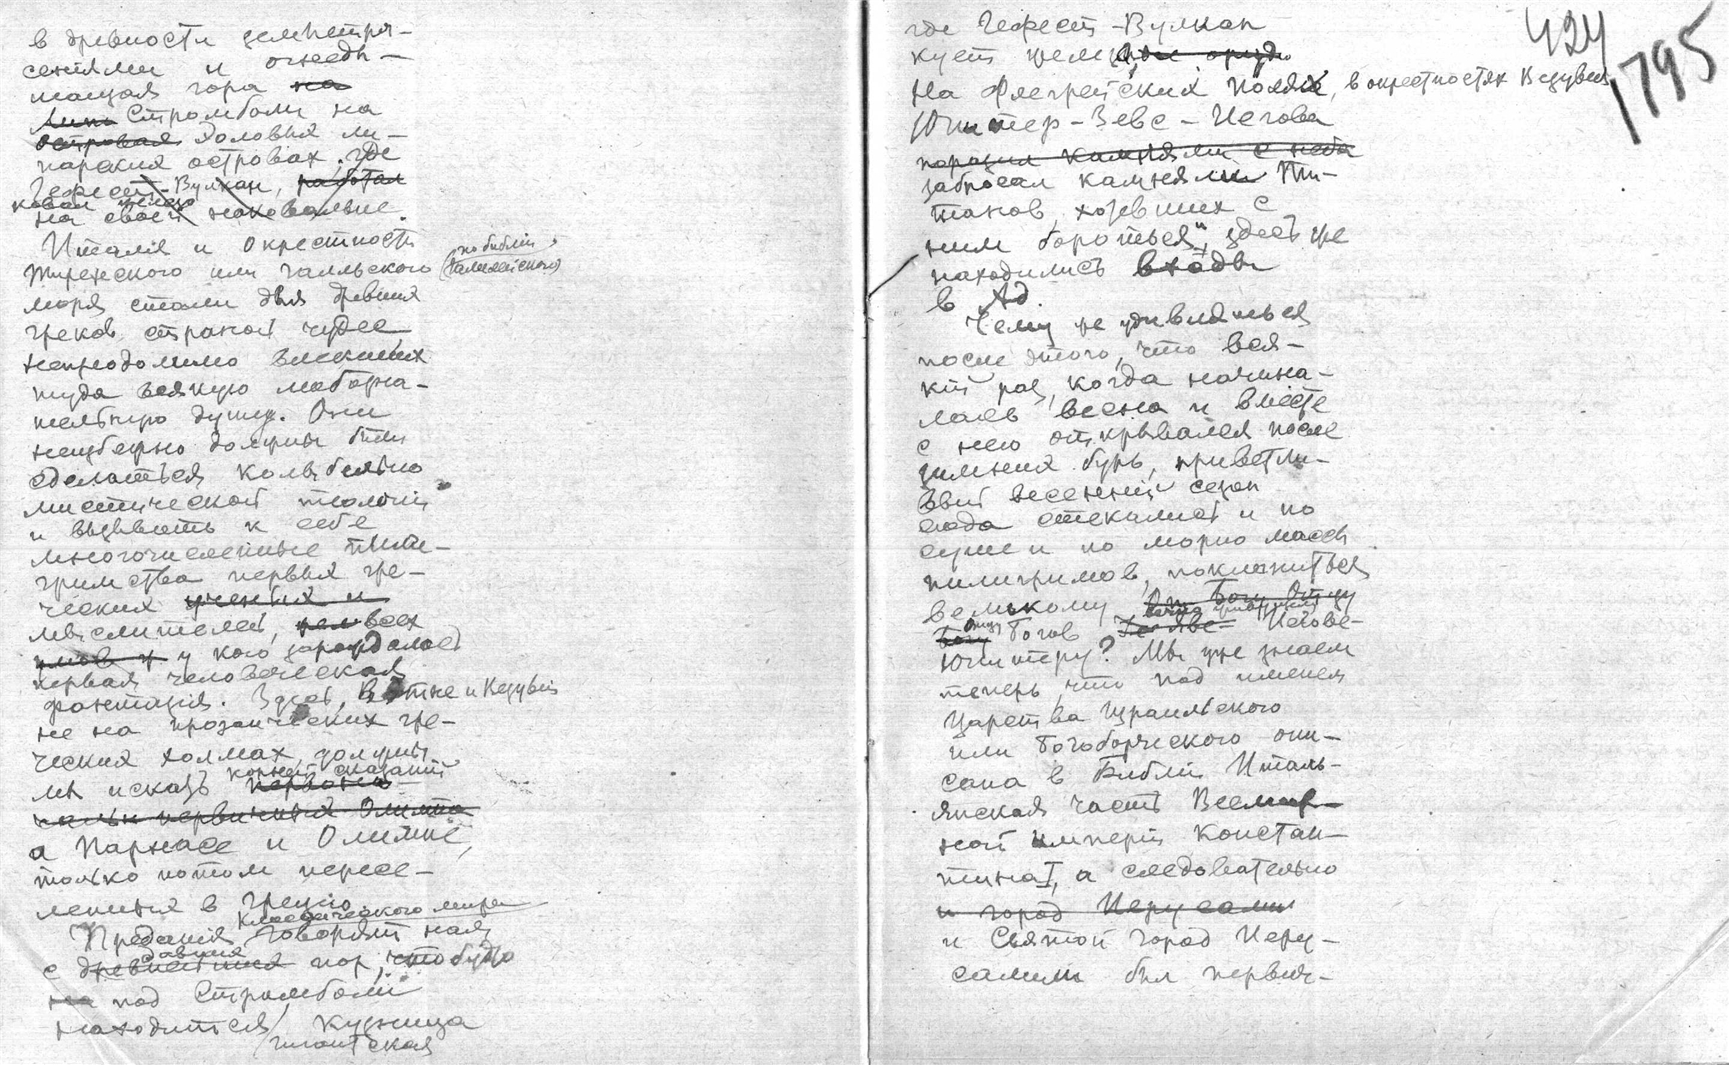 в древности землетря-
сениями и огнеды-
шащая гора на
Лип Стромболи на
островах Эоловых ли-
парских островах, где
Гефест-Вулкан, работал
ковал железо
на своей наковальне.
Италия и окрестности
Тирренского или галльского (по библии, Галилейского)
моря стали для древних
греков страной чудес,
непреодолимо влекших
туда всякую любозна-
тельную душу. Они
неизбежно должны были
сделаться колыбелью
мистической теологии
и вызывать к себе
многочисленные пили-
гримства первых гре-
ческих ученых и
мыслителей, всех
умов и у кого зарождалась
первая человеческая
фантазия. Здесь, в Этне и Везувии
не на прозаических гре-
ческих холмах, должны
мы искать корней сказаний
первона-
чальн первичных Олимпа
о Парнасе и Олимпе,
только потом пересе-
ленных в Грецию.
классического мира
Предания говорят нам
с древнейших давних пор, что будто
на под Стромболи
находится гигантская кузница
где Гефест-Вулкан
кует железо
На Флегрейских полях, в окрестностях Везувия
Юпитер-Зевс-Иегова
поразил камнями с неба
забросал камнями Ти-
танов, хотевших с
ним бороться, здесь же
находились входы
в Ад.
Чему же удивляться
после этого, что вся-
кий раз, когда начина-
лась весна и вместе
с нею открывался после
зимних бурь, приветли-
вый весенний сезон
сюда стекались и по
суше и по морю массы
пилигримов, поклониться
великому Богу Отцу
Богу Отцу Богов Иегове-
Юпитеру? Мы уже знаем
теперь, что под именем
Царства Израильского
или Богоборческого опи-
сана в Библии Италь-
янская часть Всемир-
ной империи Констан-
тина I, а следовательно
и город Иерусалим
и Святой город Иеру-
салим был первич-
424
1795